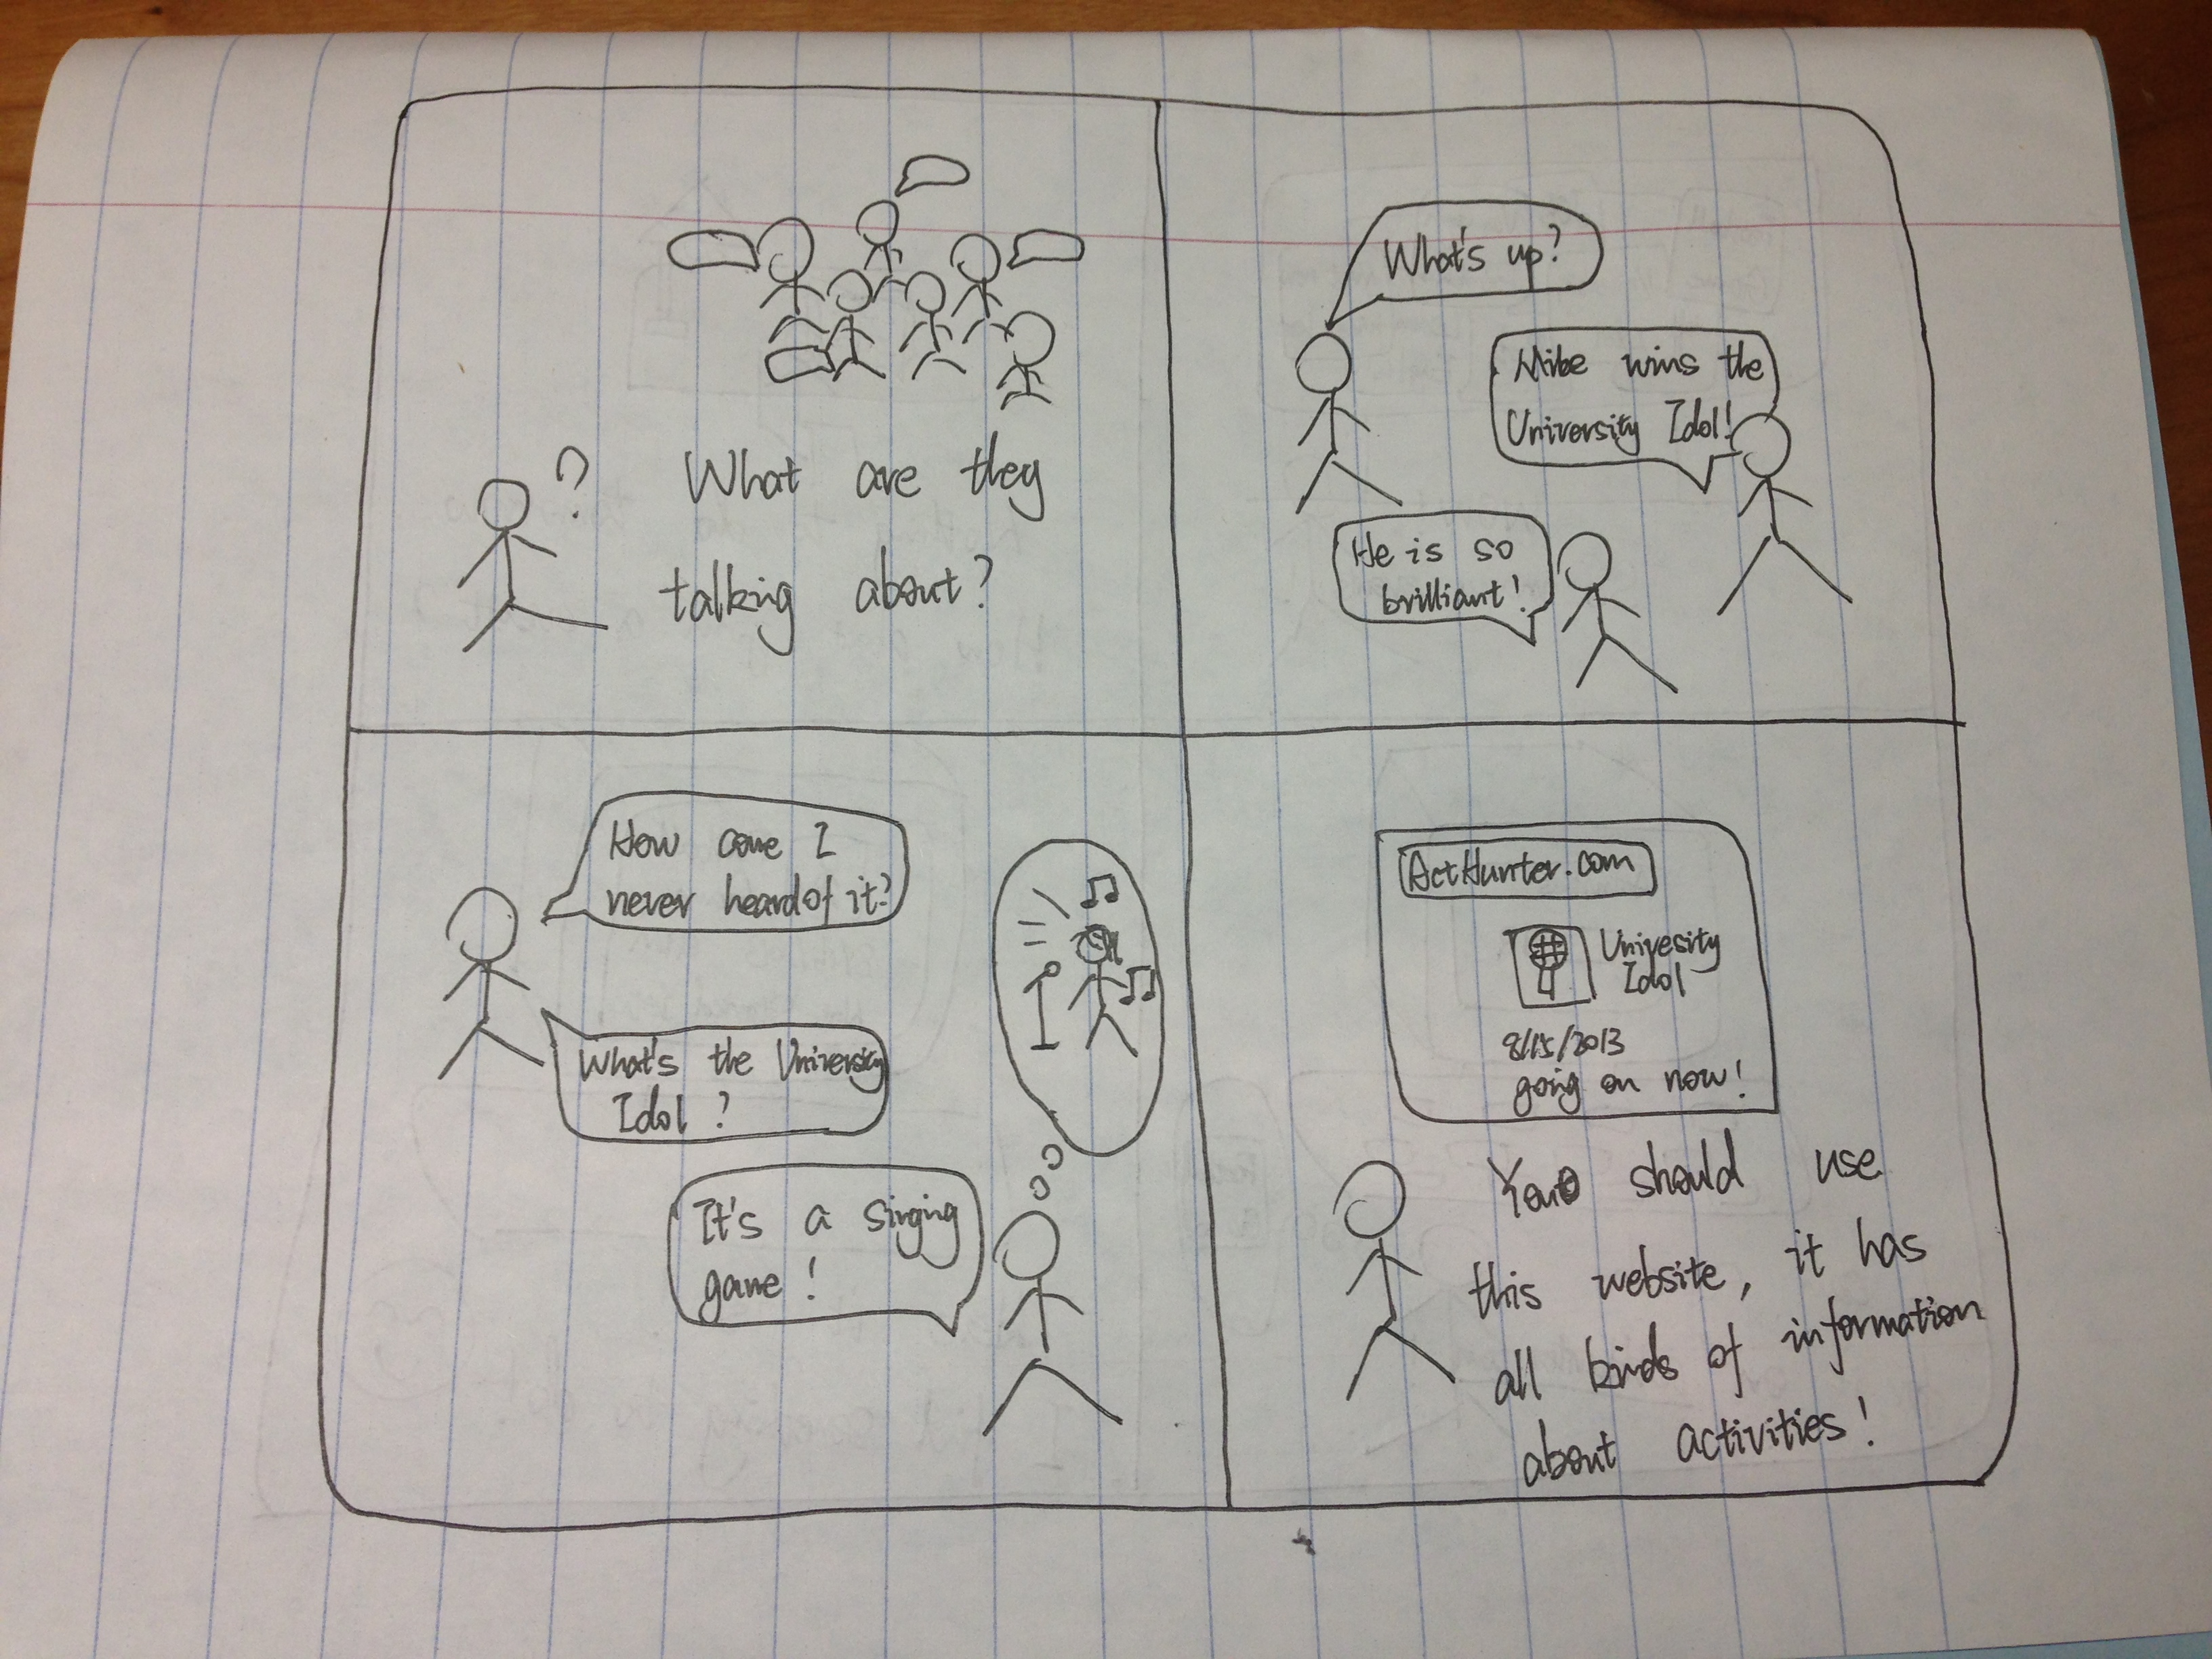 ?
What are they
talking about?
What's up?
Mike wins the
University Idol!
He is so
brilliant!
How come I
never heard of it?
What's the University
Idol?
It's a singing
game!
ActHunter.com
Univesity
Idol
8/15/2013
going on now!
You should use
this website, it has
all kinds of information
about activities!